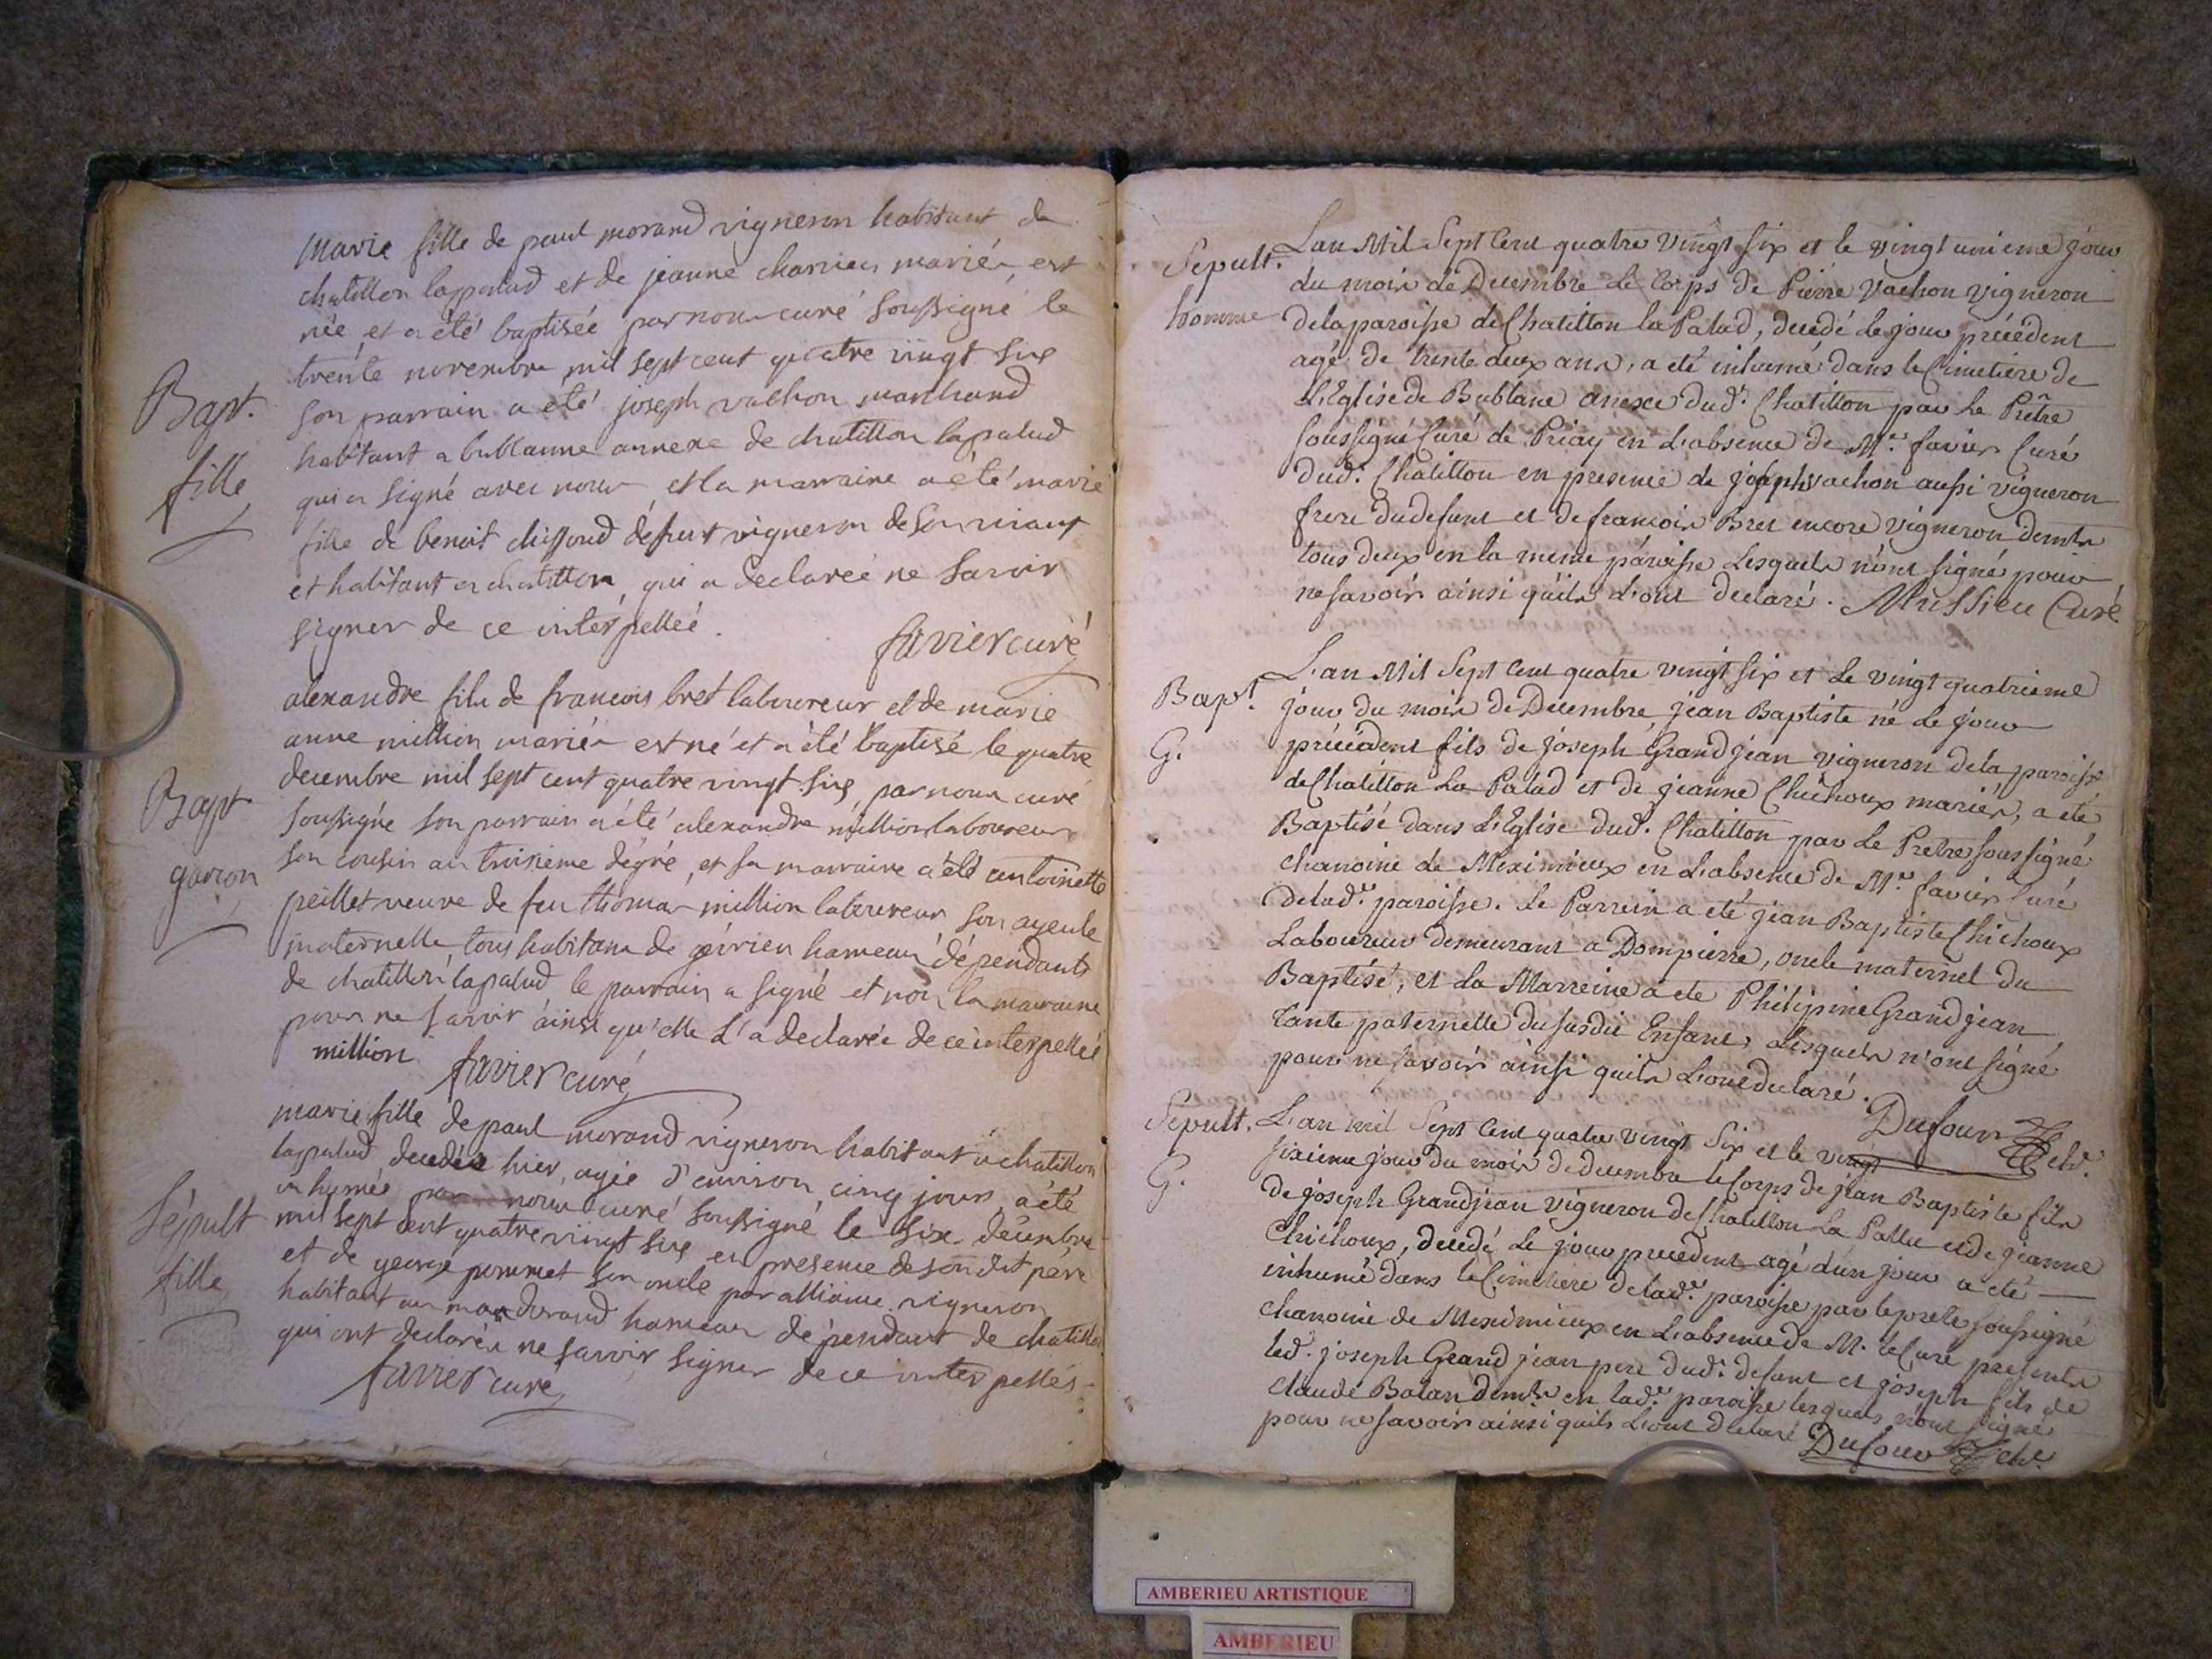 Marie fille de paul morand vigneron habitant de
chatillon lapalud et de jeanne mariés est
née et a été baptisée par nous curé soussigné le
trente novembre mil sept cent quatre vingt six
son parrain a été joseph vachon marchand
habitant a bublanne annexe de chatillon lapalud
qui a signé avec nous et la marraine a été marie
fille de benoit défunt vigneron de son vivant
et habitant a chatillon, qui a declarée ne savoir
signer de ce interpellée.
favier curé
Bapt.
fille
alexandre fils de francois bret laboureur et de marie
anne million mariés est né et a été baptisé le quatre
decembre mil sept cent quatre vingt six par nous curé
soussigné son parrain a été alexandre million laboureur
son cousin au troisieme dégré, et sa marraine a été antoinette
peillet veuve de feu thomas million laboureur son ayeule
maternelle tous habitans de gévrieu hameau dépendants
de chatillon lapalud le parrain a signé et non la marraine
pour ne savoir ainsi qu'elle l'a declarée de ce interpellée
million favier curé
Bapt
garcon
marie fille de paul morand vigneron habitant a chatillon
lapalud decedée hier, agée d'environ cinq jours a été
inhumée par nous curé soussigné le six decembre
mil sept cent quatre vingt six en presence de son dit pere
et de george pommet son oncle par alliance vigneron
habitant au hameau dépendant de chatillon
qui ont declarés ne savoir signer de ce interpellés
favier curé
Sépult
fille
Sepult.
homme
L'an Mil Sept Cent quatre vingt six et le vingt unieme jour
du mois de Decembre le Corps de Pierre Vachon vigneron
de la paroisse de Chatillon la Palud, decédé le jour précédent
agé de trente deux ans, a eté inhumé dans le Cimetiere de
L'Eglise de Bublane anexe dud. Chatillon par le Prêtre
soussigné Curé de Priay en L'absence de Mr. favier Curé
dud. Chatillon en presence de joseph vachon aussi vigneron
frere du defunt et de francois Bret encore vigneron demts
tous deux en la meme paroisse Lesquels n'ont signé pour
ne savoir ainsi qu'ils L'ont declaré. Mussieu Curé
Bapt.
G.
L'an Mil Sept Cent quatre vingt six et Le vingt quatrieme
jour du mois de Decembre jean Baptiste né Le jour
précédent fils de joseph Grandjean vigneron de la paroisse
de Chatillon La Palud et de jeanne Chichoux mariés, a eté
Baptisé dans L'Eglise dud. Chatillon par Le Pretre soussigné
chanoine de Meximieux en L'absence de Mr. favier Curé
de lad.e paroisse. Le Parrein a eté jean Baptiste Chichoux
Laboureur demeurant a Dompierre, oncle maternel du
Baptisé, et La Marreine a eté Philipine Grandjean
tante paternelle du susdit Enfant, Lesquels n'ont signé
pour ne savoir ainsi quils L'ont declaré.
Dufour
Sepult.
G.
L'an mil Sept Cent quatre vingt Six et le vingt
sixieme jour du mois de decembre le Corps de jean Baptiste fils
de joseph Grandjean vigneron de Chatillon La Pallu et de jeanne
Chichoux, decedé Le jour precedent agé d'un jour a eté
inhumé dans le Cimetiere de lad.e paroisse par le pretre soussigné
chanoine de Meximieux en L'absence de M. le Curé presents
led. joseph Grand jean pere dud. defunt et joseph fils de
claude Balan demts en lad.e paroisse lesquels n'ont signé
pour ne savoir ainsi quils L'ont declaré Dufour
AMBERIEU ARTISTIQUE
AMBERIEU